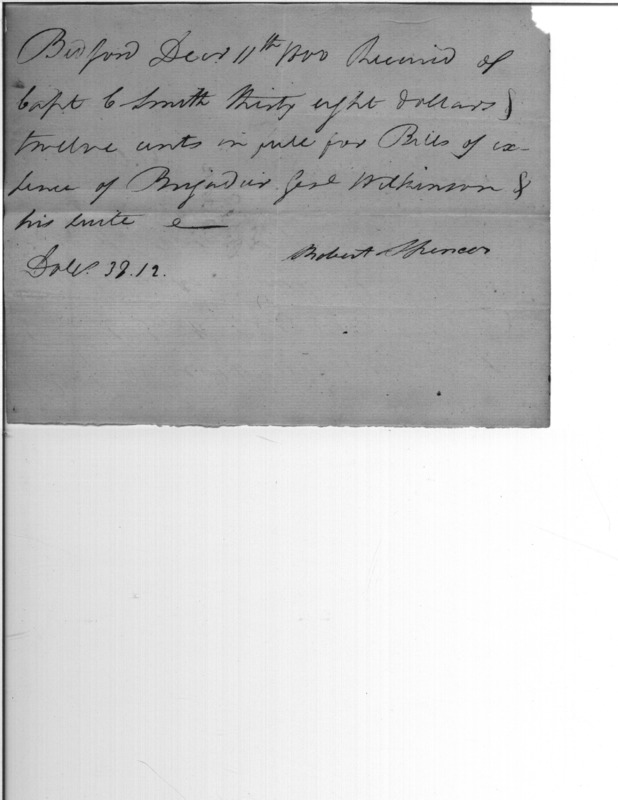 Bedford Decr 11th 1800 Received of
Capt C Smith thirty eight dollars &
twelve cents in full for Bills of ex-
pence of Brigadier Genl Wilkinson &
his suite
Dolls. 38.12.
Robert Spencer